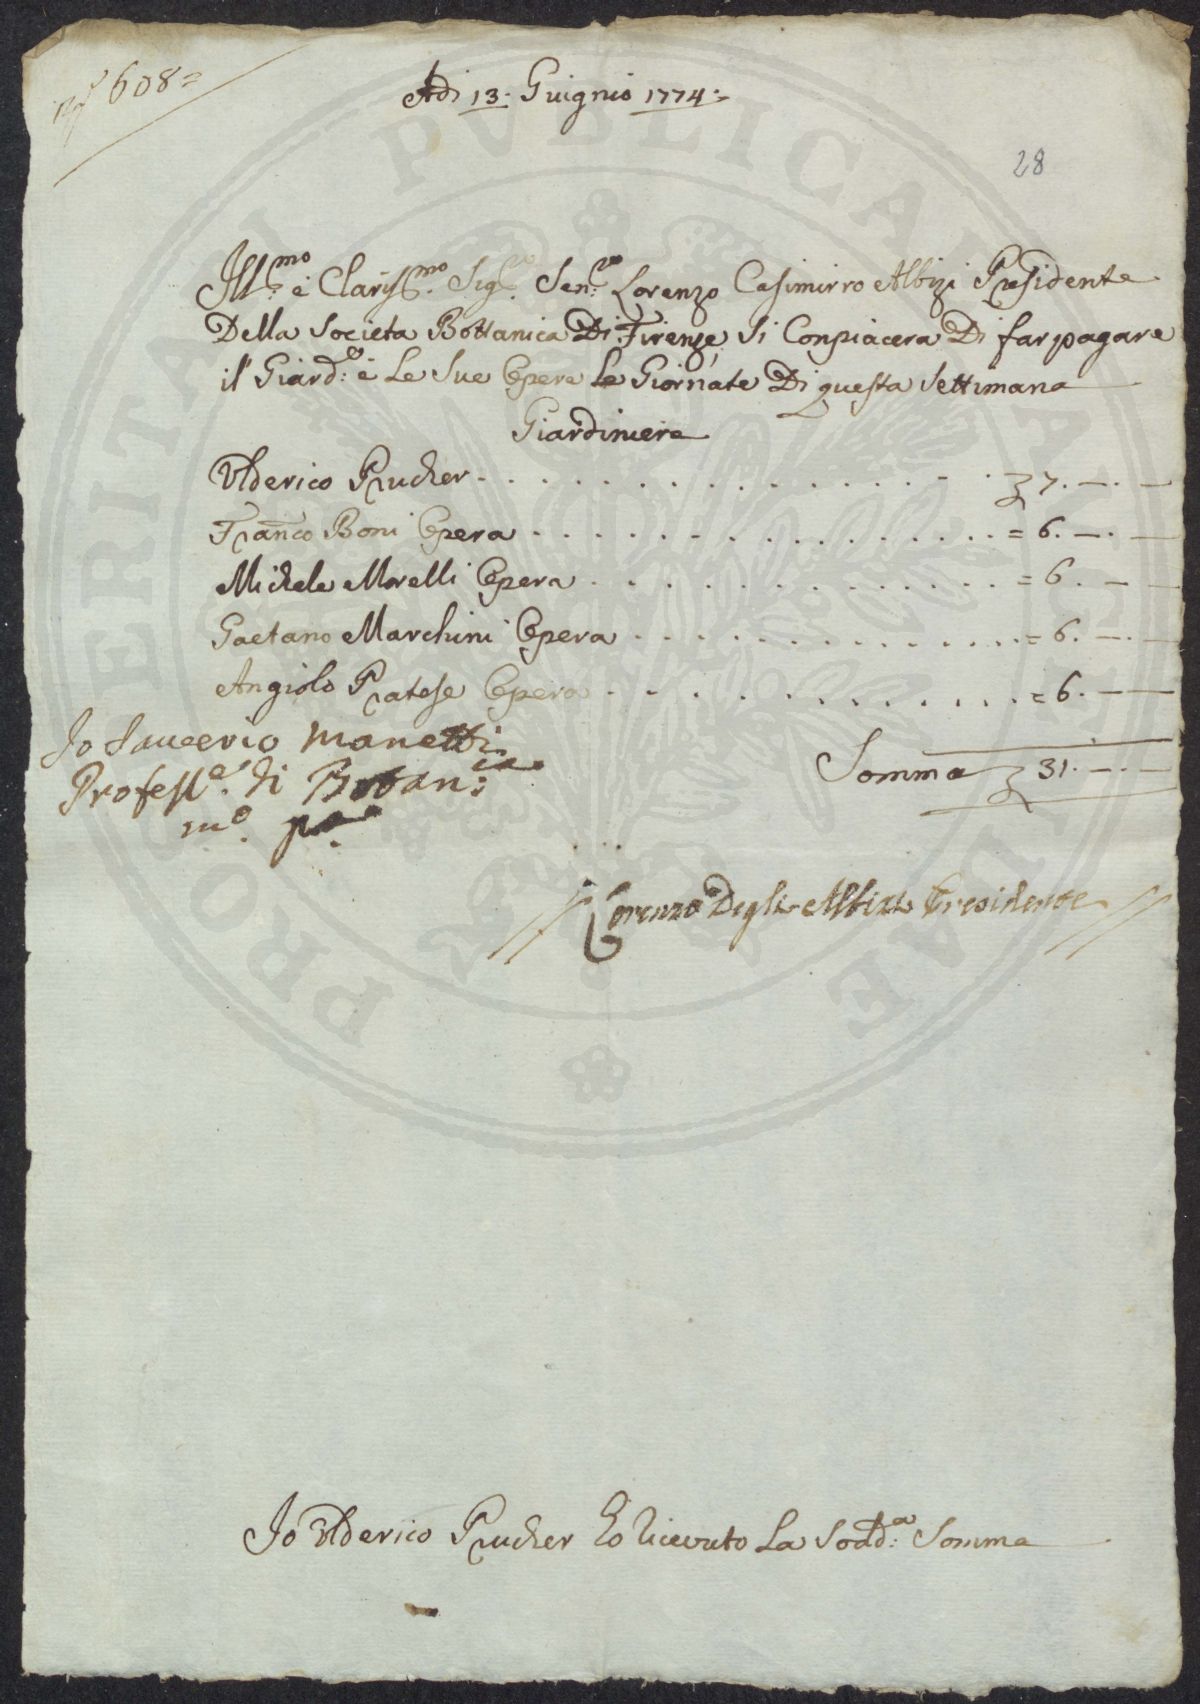 N° 608=
Adi 13: Guignio 1774:
28
Ill:mo e Clariss:mo Sig:re Sen:re Lorenzo Casimirro Albizi Presidente
Della Societa Bottanica Di Firenze Si Conpiacera Di far pagare
il Giard:e e Le Sue Opere Le Giornate Di questa Settimana
Giardiniere
Vlderico Prucher - . . . . . . . . . . . . . . . . £ 7. —. —
Franco Boni Opera . . . . . . . . . . . . . . . = 6. —. —
Michele Morelli Opera . . . . . . . . . . . . . = 6. — —
Gaetano Marchini Opera . . . . . . . . . . . . = 6. —. —
Angiolo Pratese Opera . . . . . . . . . . . . . = 6. — —
Somma £ 31. —. —
Jo Saverio Manetti
Profess:e di Botan:ca
m:o p:a
// Lorenzo Degli Albizi Presidente //
Jo Vlderico Prucher Ho Ricevuto La Sodd:a Somma
PROPERITATI PVBLICAE AVGENDAE